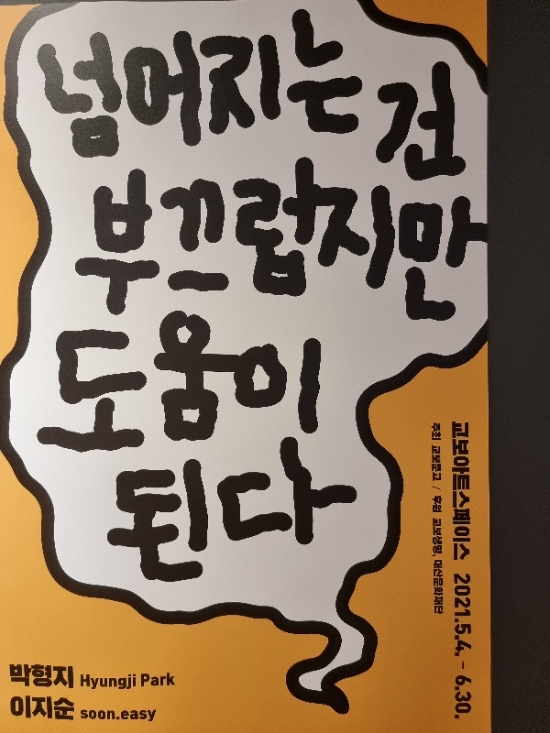 넘어지는 건
부끄럽지만
도움이
된다
교보아트스페이스 2021.5.4. – 6.30.
주최 교보문고 / 후원 교보생명, 대산문화재단
박형지 Hyungji Park
이지순 soon.easy